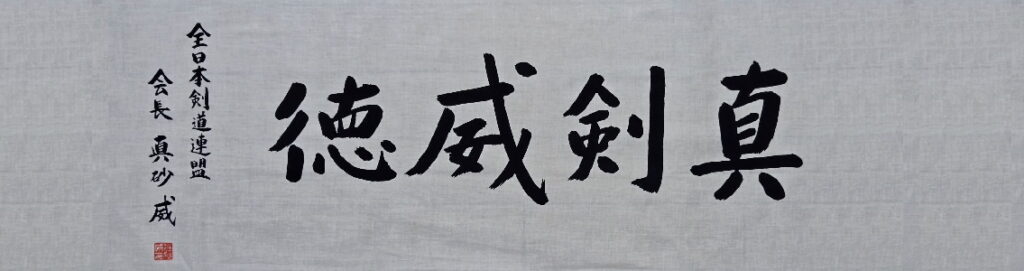 真剣威徳
全日本剣道連盟
会長 真砂威